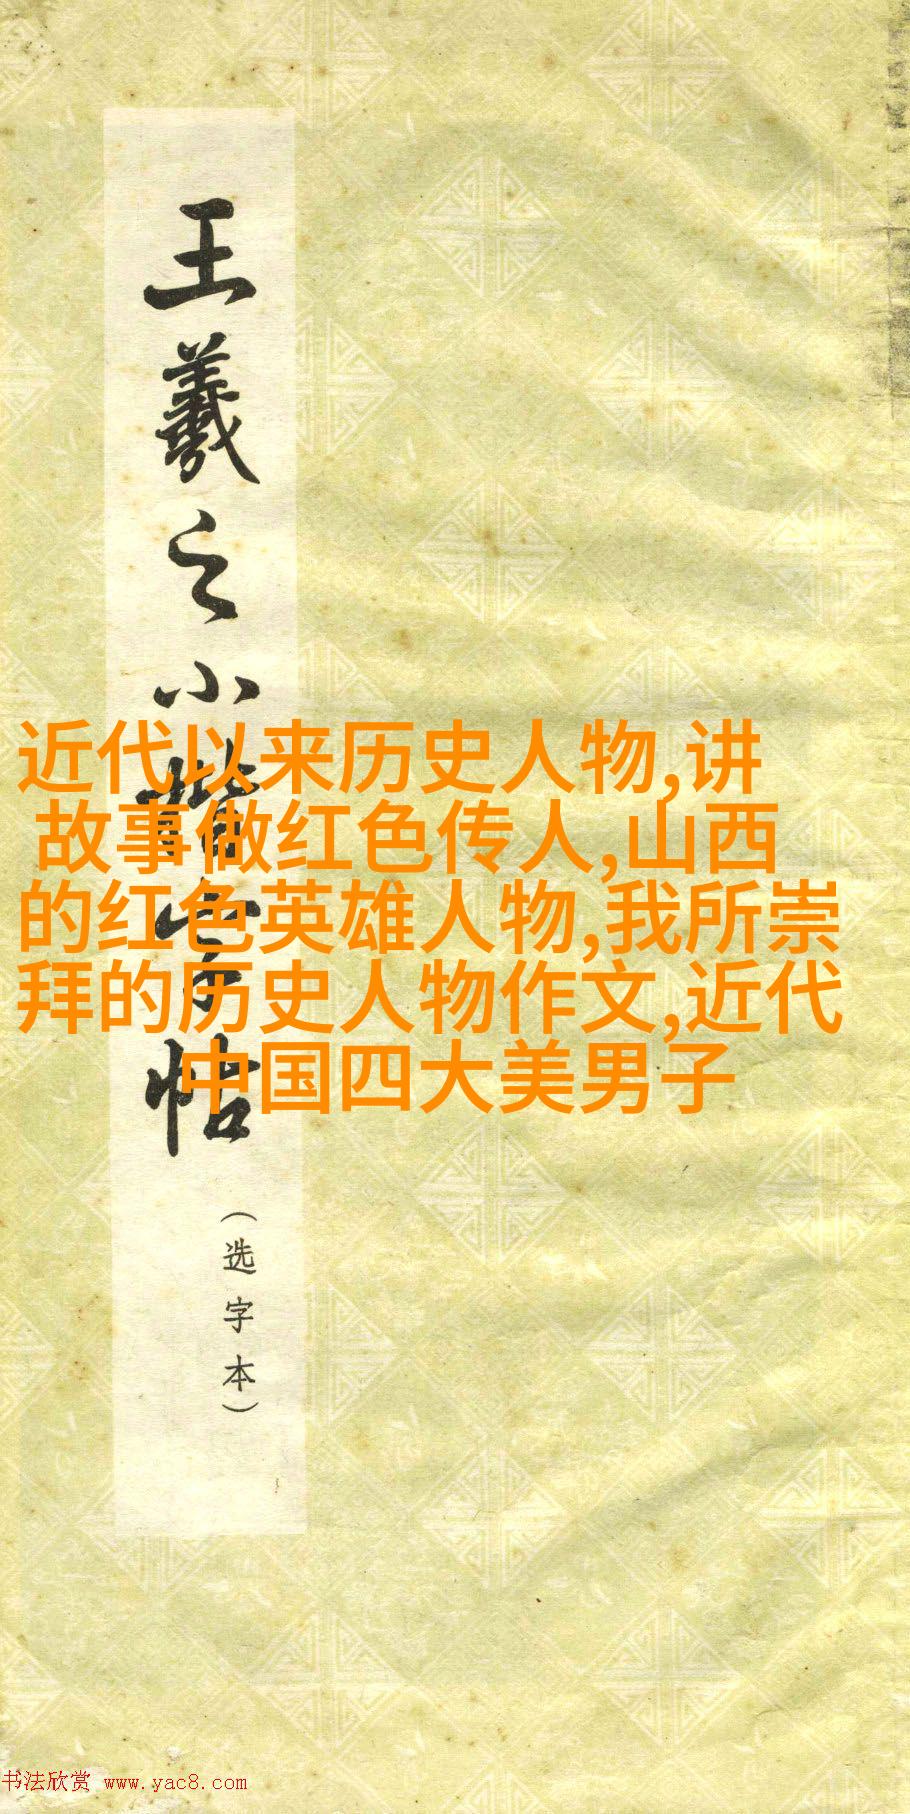 王羲之小楷字帖
（选字本）
近代以来历史人物,讲
故事做红色传人,山西
的红色英雄人物,我所崇
拜的历史人物作文,近代
中国四大美男子
书法欣赏 www.yac8.com